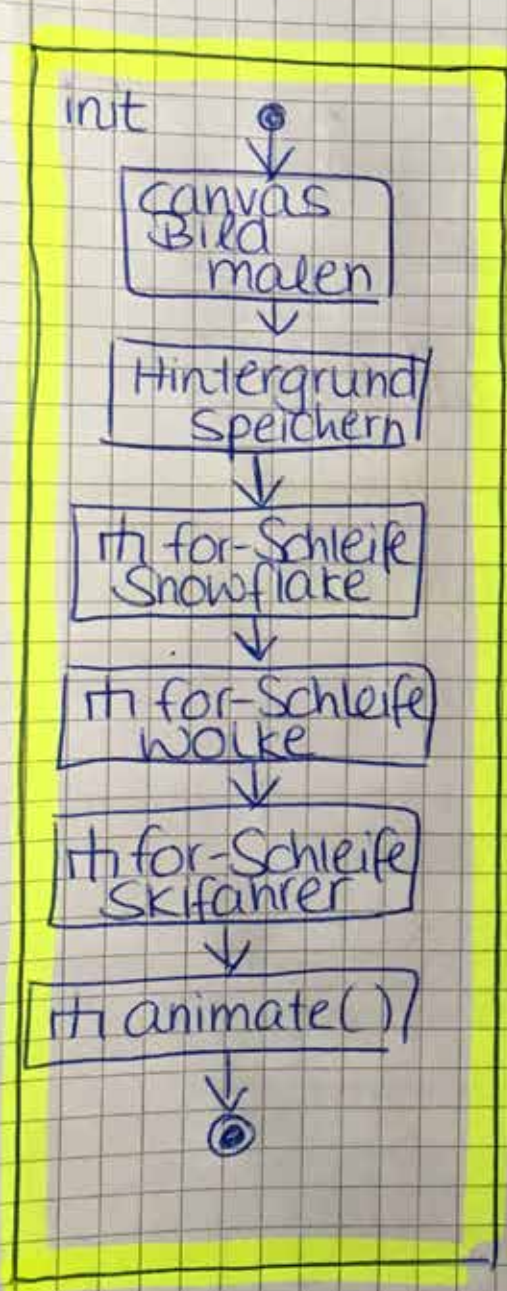 init
canvas
Bild
malen
Hintergrund
Speichern
for-Schleife
Snowflake
for-Schleife
Wolke
for-Schleife
Skifahrer
animate()